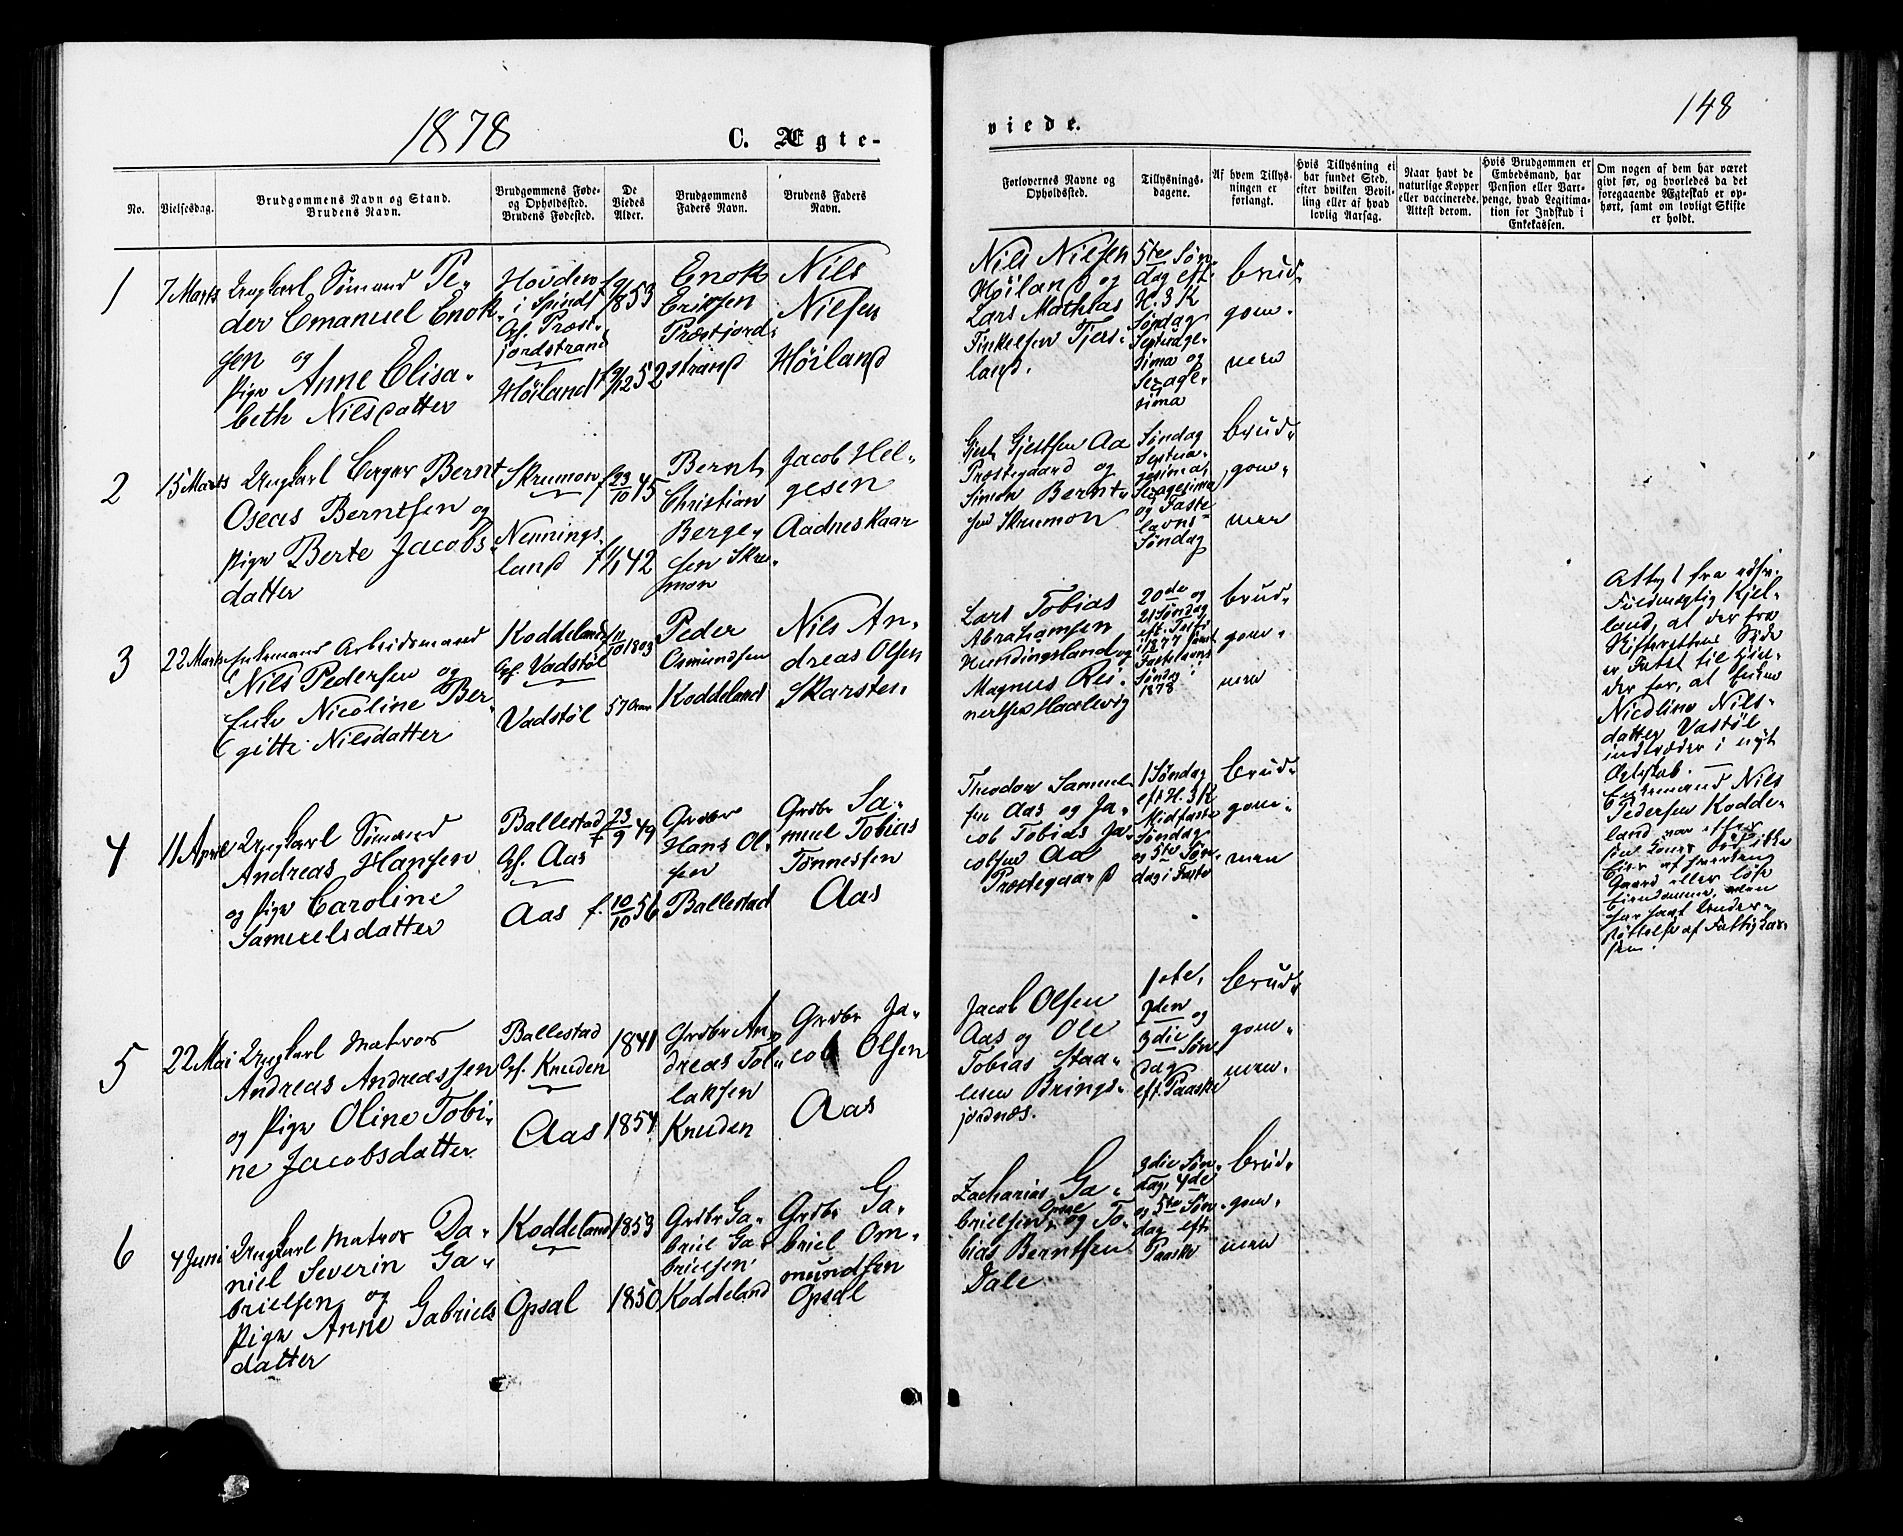 1878
C. Ægte-
No.
Vielsesdag.
Brudgommens Navn og Stand.
Brudens Navn.
Brudgommens Føde-
og Opholdssted.
Brudens Fødested.
De
Viedes
Alder.
Brudgommens
Faders Navn.
Brudens Faders
Navn.
1
7 Marts
Ungkarl Sømand Pe-
der Emanuel Enok-
sen og
Pige Anne Elisa-
beth Nilsdatter
Hovden
i Spind
Præst-
jordstrand
Høiland
1853
52
Enok
Eriksen
Præstjord-
strand
Nils
Nielsen
Høiland
2
15 Marts
Ungkarl Berger Bernt
Oseas Berntsen og
Pige Berte Jacobs-
datter
Skrumon
f 23/10 45
Nennings-
land
f 1/1 42
Bernt
Christian
Berge-
sen Skru-
mon
Jacob Hel-
gesen
Aadneskaar
3
22 Marts
Enkemand Arbeidsmand
Nils Pedersen og
Enke Nicoline Ber-
gitte Nilsdatter
Koddeland
Vadstøl
Vadstøl
11/10 1803
57 Aar
Peder
Osmundsen
Koddeland
Nils An-
dreas Olsen
Skarsten
4
11 April
Ungkarl Sømand
Andreas Hansen
og Pige Caroline
Samuelsdatter
Ballestad
Aas
Aas
f 23/9 49
f. 10/10 56
Grdbr
Hans Ol-
sen
Ballestad
Grdbr Sa-
muel Tobias
Tønnessen
Aas
5
22 Mai
Ungkarl Matros
Andreas Andreassen
og Pige Oline Tobi-
ne Jacobsdatter
Ballestad
Knuden
Aas
1841
1854
Grdbr An-
dreas Tol-
laksen
Knuden
Grdbr Ja-
cob Olsen
Aas
6
4 Juni
Ungkarl Matros Da-
niel Severin Ga-
brielsen og
Pige Anne Gabriels
datter
Koddeland
Opsal
1853
1850
Grdbr Ga-
briel Ga-
brielsen
Koddeland
Grdbr Ga-
briel Om-
mundsen
Opsal
148
viede.
Forlovernes Navne og
Opholdssted.
Tillysnings-
dagene.
Af hvem Tillys-
ningen er
forlangt.
Hvis Tillysning ei
har fundet Sted,
efter hvilken Bevil-
ling eller af hvad
lovlig Aarsag.
Naar havt de
naturlige Kopper
eller vaccinerede.
Attest derom.
Hvis Brudgommen er
Embedsmand, har
Pension eller Vart-
penge, hvad Legitima-
tion for Indskud i
Enkekassen.
Om nogen af dem har været
givt før, og hvorledes da det
foregaaende Ægteskab er op-
hørt, samt om lovligt Skifte
er holdt.
Nils Nielsen
Høiland og
Lars Mathias
Tinkelsen Tjers-
land.
5te Søn-
dag eft.
H. 3 K
Søndag
Septuage-
sima og
Sexage-
sima
Brud-
gom-
men
Gjert Gjertsen Aa
Præstegaard og
Simon Bernt-
sen Skrumon
Søndag
Septua-
gesima,
Sexagesima
og Faste-
lavns-
Søndag
Brud-
gom-
men
Lars Tobias
Abrahamsen
Hundingsland og
Magnus Rei-
nertsen Haalevig
20de og
21 Søndag
eft. Tref.
1877 samt
Fastelavns
Søndag
1878
Brud-
gom-
men
Attest fra
Fuldmægtig Kjel-
land, at der fra
Skifterettens Side
er Intet til Hin-
der for, at Enken
Nicoline Nils-
datter Vastøl
indtræder i nyt
Ægteskab. —
Enkemand Nils
Pedersen Kodde-
land
Gaard eller løse
Eiendomme, men
har havt Under-
støttelse af Fattigkas-
sen.
Theodor Samuel-
sen Aas og Ja-
cob Tobias Ja-
cobsen Aa
Præstegaard
1 Søndag
eft H. 3 K
Midfaste
Søndag
og 5te Søn-
dag i Faste
Brud-
gom-
men
Jacob Olsen
Aas og Ole
Tobias Staa-
lesen Brings-
jordnæs.
1ste,
2den og
3die Søn-
dag
eft. Paaske
Brud-
gom-
men.
Zacharias Ga-
brielsen og To-
bias Berntsen
Dale
3die Søn-
dag, 4de
og 5te Søn-
dag eft.
Paaske
Brud-
gom-
men